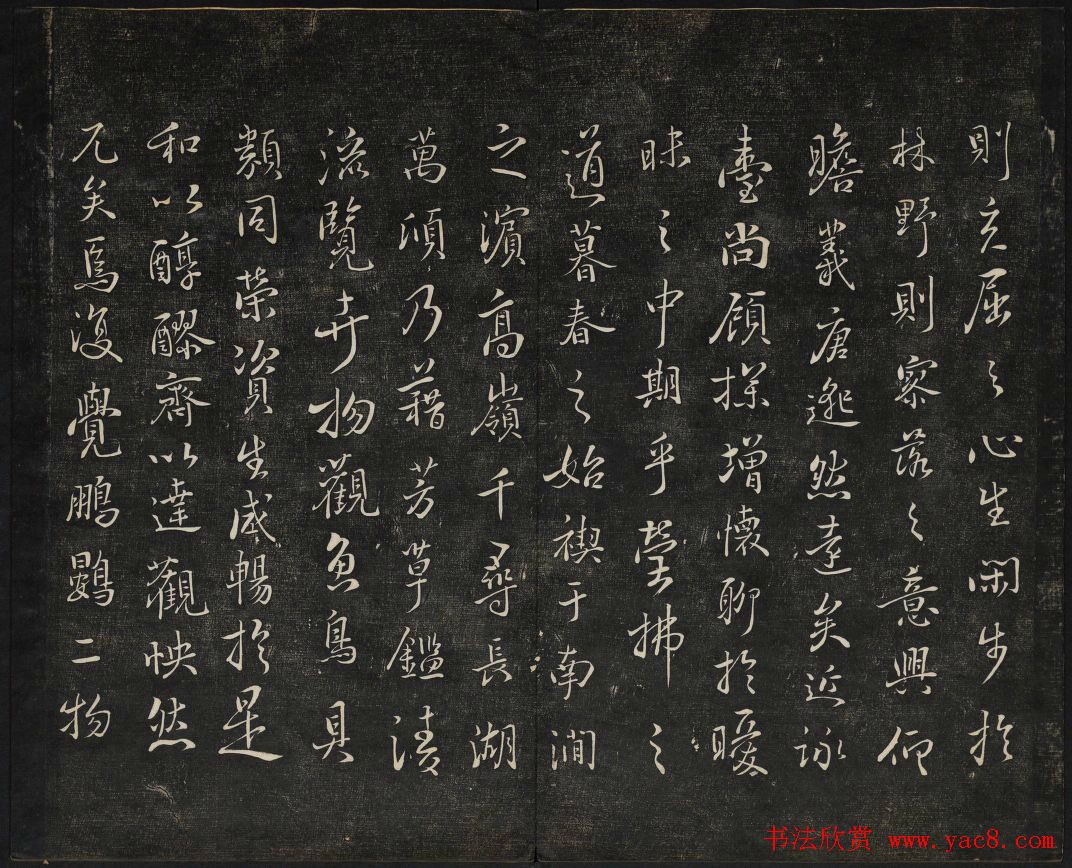 則充屈之心生閑步於
林野則寥落之意興仰
瞻羲唐邈然遠矣近詠
臺尚顧探增懷聊於曖
昧之中期乎瑩拂之
道暮春之始禊于南澗
之濱高嶺千尋長湖
萬頃乃藉芳草鑑清
流覽卉物觀魚鳥具
類同榮資生咸暢於是
和以醇醪齊以達觀怏然
兀矣焉復覺鵬鷃二物
书法欣赏 www.yac8.com